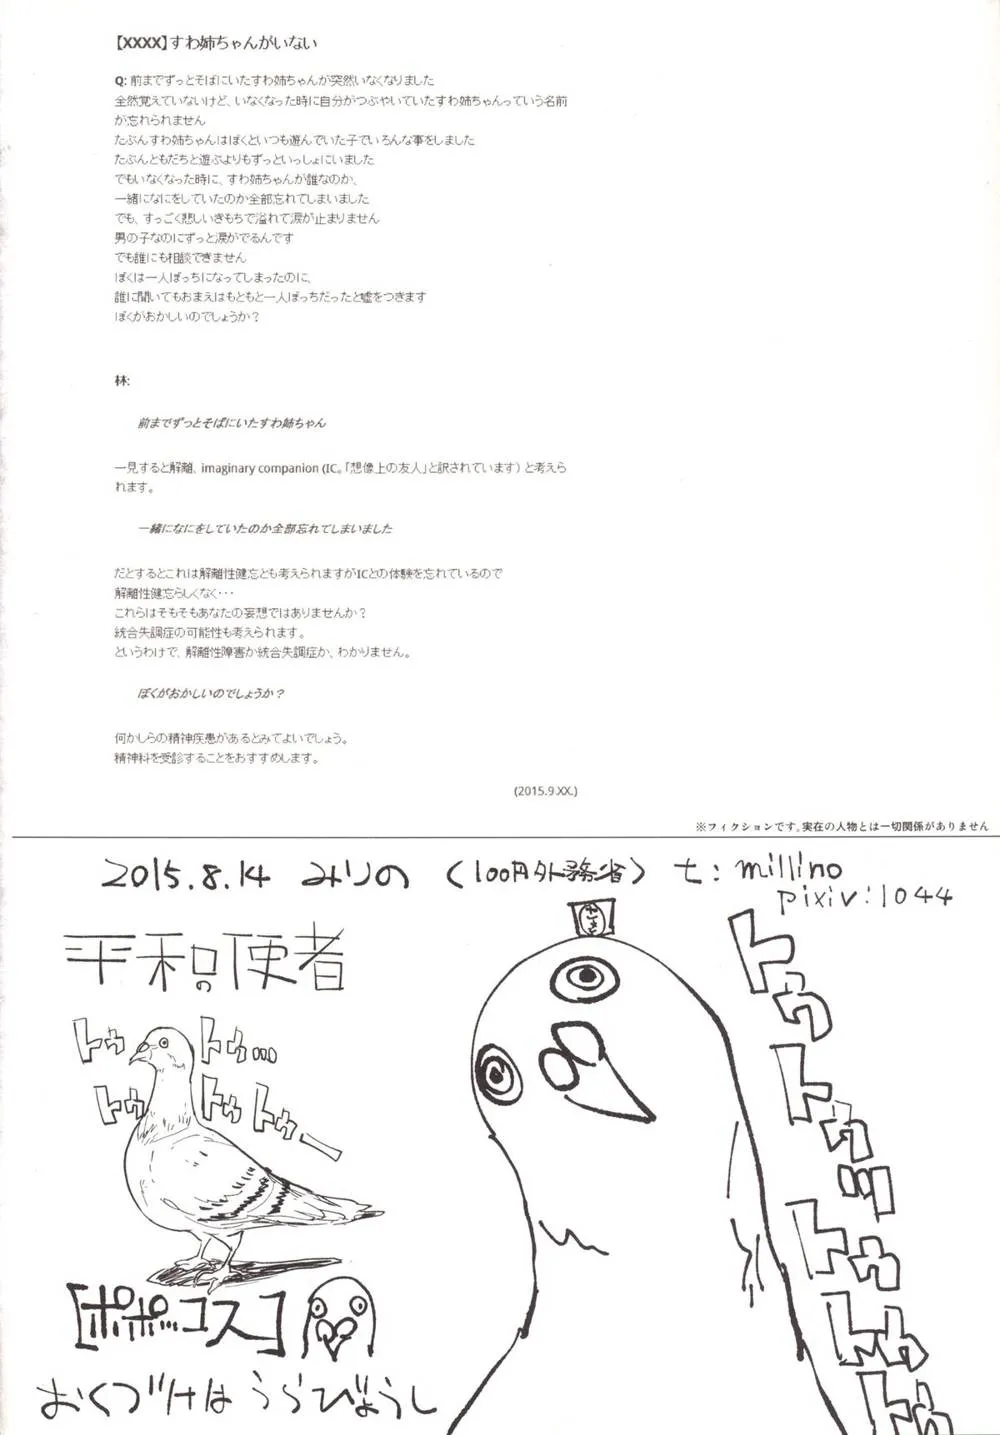 【XXXX】すわ姉ちゃんがいない
Q: 前までずっとそばにいたすわ姉ちゃんが突然いなくなりました
全然覚えていないけど、いなくなった時に自分がつぶやいていたすわ姉ちゃんっていう名前
が忘れられません
たぶんすわ姉ちゃんはぼくといつも遊んでいた子でいろんな事をしました
たぶんともだちと遊ぶよりもずっといっしょにいました
でもいなくなった時に、すわ姉ちゃんが誰なのか、
一緒になにをしていたのか全部忘れてしまいました
でも、すっごく悲しいきもちで溢れて涙が止まりません
男の子なのにずっと涙がでるんです
でも誰にも相談できません
ぼくは一人ぼっちになってしまったのに、
誰に聞いてもおまえはもともと一人ぼっちだったと嘘をつきます
ぼくがおかしいのでしょうか？
林:
前までずっとそばにいたすわ姉ちゃん
一見すると解離、imaginary companion (IC。「想像上の友人」と訳されています) と考えら
れます。
一緒になにをしていたのか全部忘れてしまいました
だとするとこれは解離性健忘とも考えられますがICとの体験を忘れているので
解離性健忘らしくなく・・・
これらはそもそもあなたの妄想ではありませんか？
統合失調症の可能性も考えられます。
というわけで、解離性障害か統合失調症か、わかりません。
ぼくがおかしいのでしょうか？
何かしらの精神疾患があるとみてよいでしょう。
精神科を受診することをおすすめします。
(2015.9.XX.)
※フィクションです。実在の人物とは一切関係がありません
2015.8.14 みりの 〈100円外務省〉 t: millino
pixiv:1044
平和の使者
トゥ トゥ…
トゥ トゥ トゥー
トゥ
トゥッ
トゥ
トゥ
トゥ
[ポポッコス]
おくづけは うらびょうし